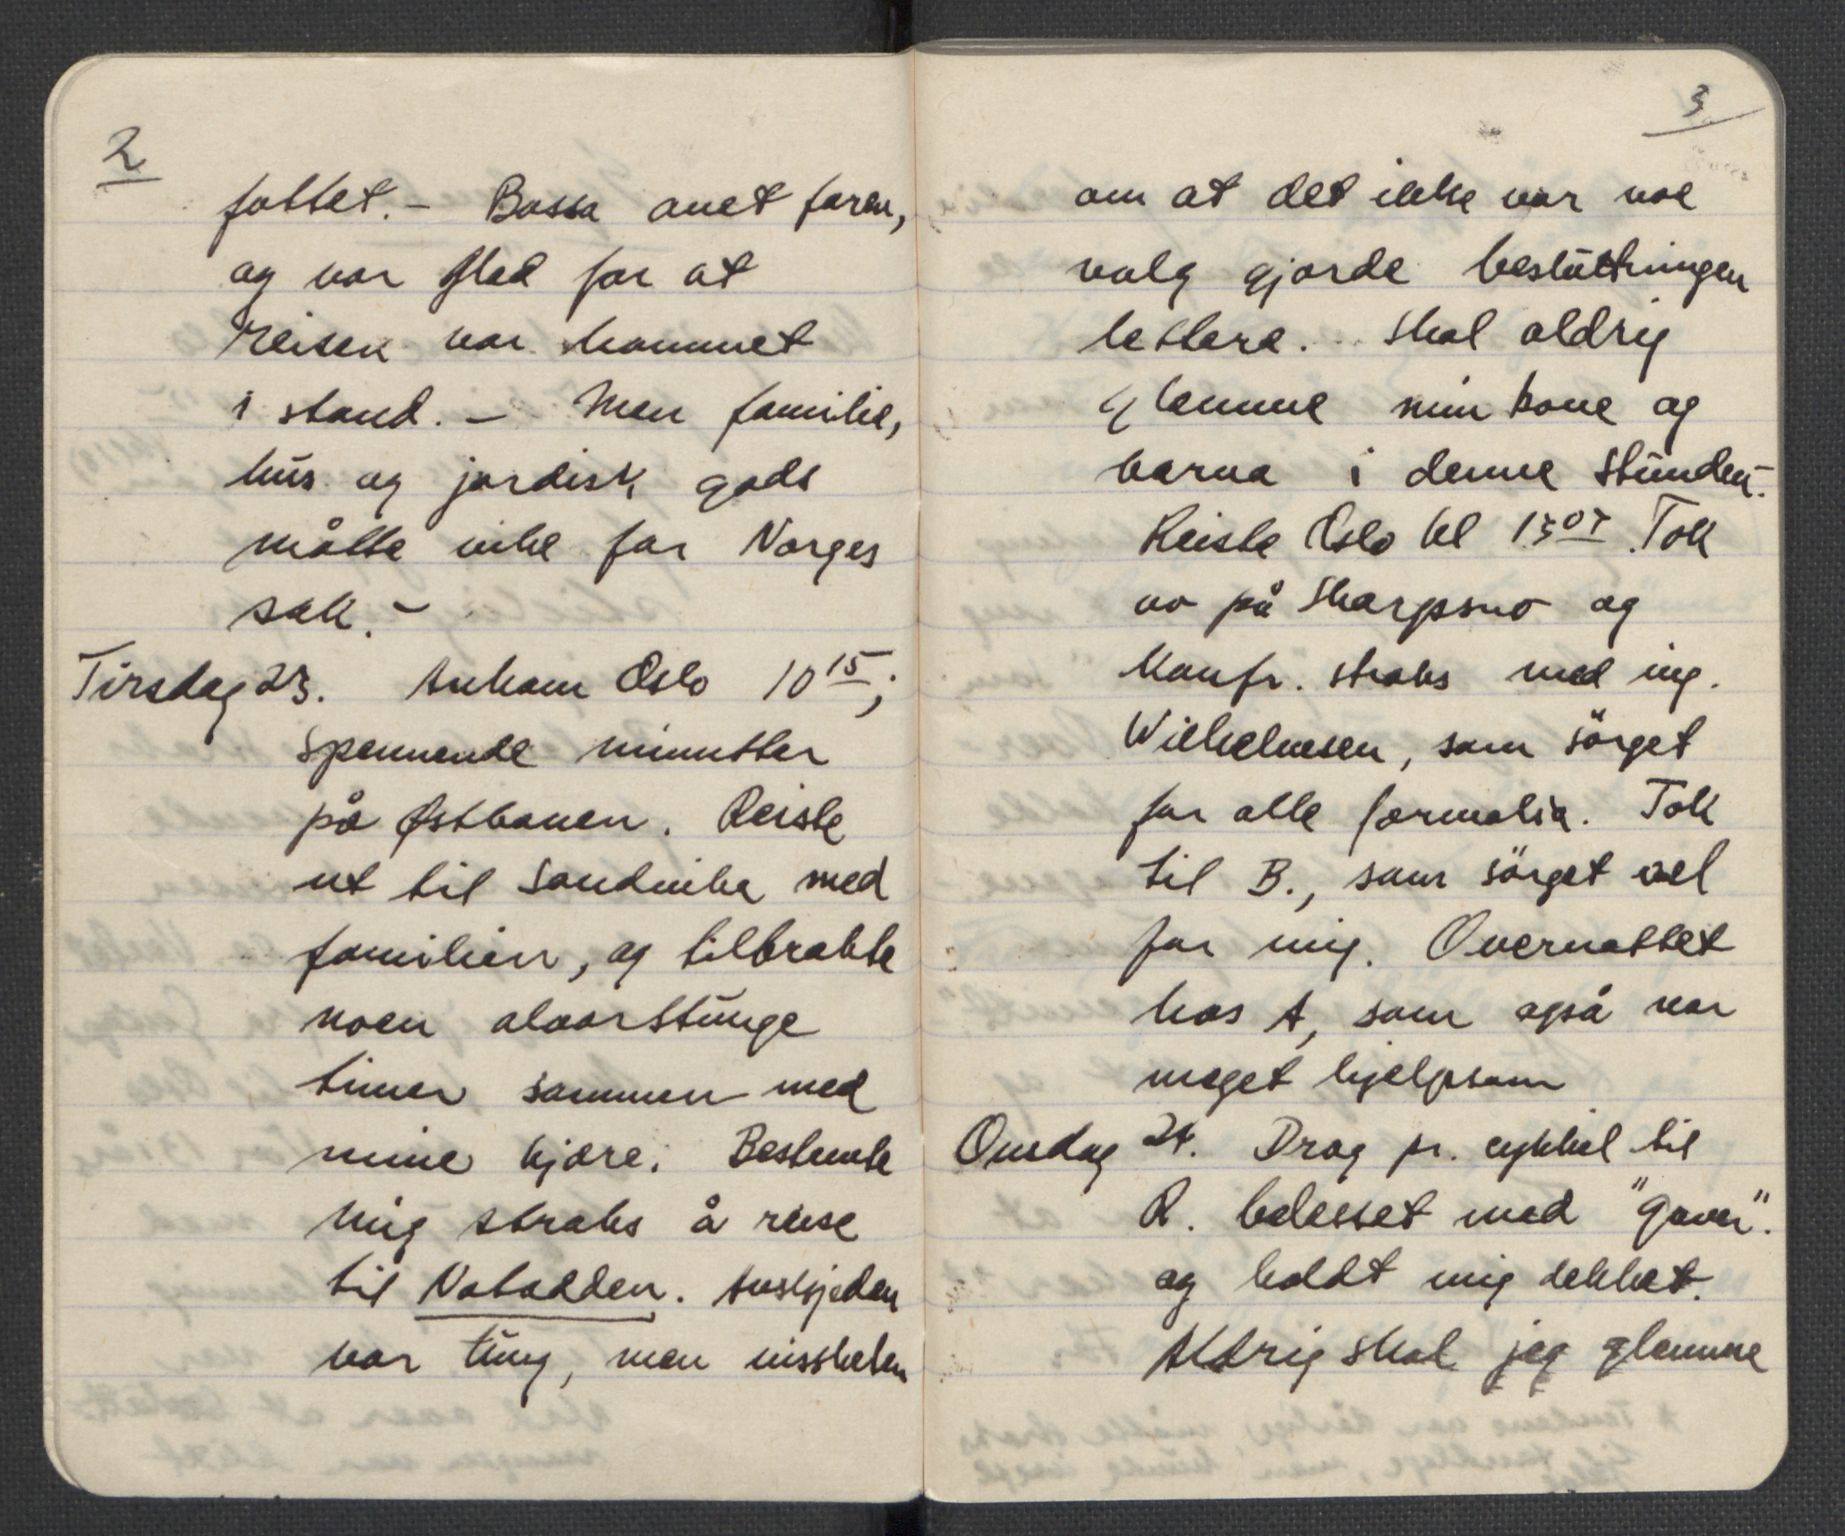 2
fattet. – Bassa anet faren,
og var glad for at
reisen var kommet
i stand. – Men familie,
hus og jordisk gods
måtte vike for Norges
sak. –
Tirsdag 23. Ankom Oslo 10 15;
spennende minutter
på Østbanen. Reiste
ut til Sandvika med
familien, og tilbrakte
noen alvorstunge
timer sammen med
mine kjære. Bestemte
mig straks å reise
til Notodden. Avskjeden
var tung, men vissheten
3
om at det ikke var noe
valg gjorde beslutningen
lettere. Skal aldrig
glemme min kone og
barna i denne stunden. –
Reiste Oslo kl 15 07. Tok
av på Skarpsno og
Konfr. straks med ing.
Wilhelmsen, som sörget
for alle formalia. Tok
til B., som sörget vel
for mig. Overnattet
hos A, som også var
meget hjelpsom
Onsdag 24. Drog pr. cykkel til
R. belesset med "gaver".
og holdt mig dekket.
Aldrig skal jeg glemme